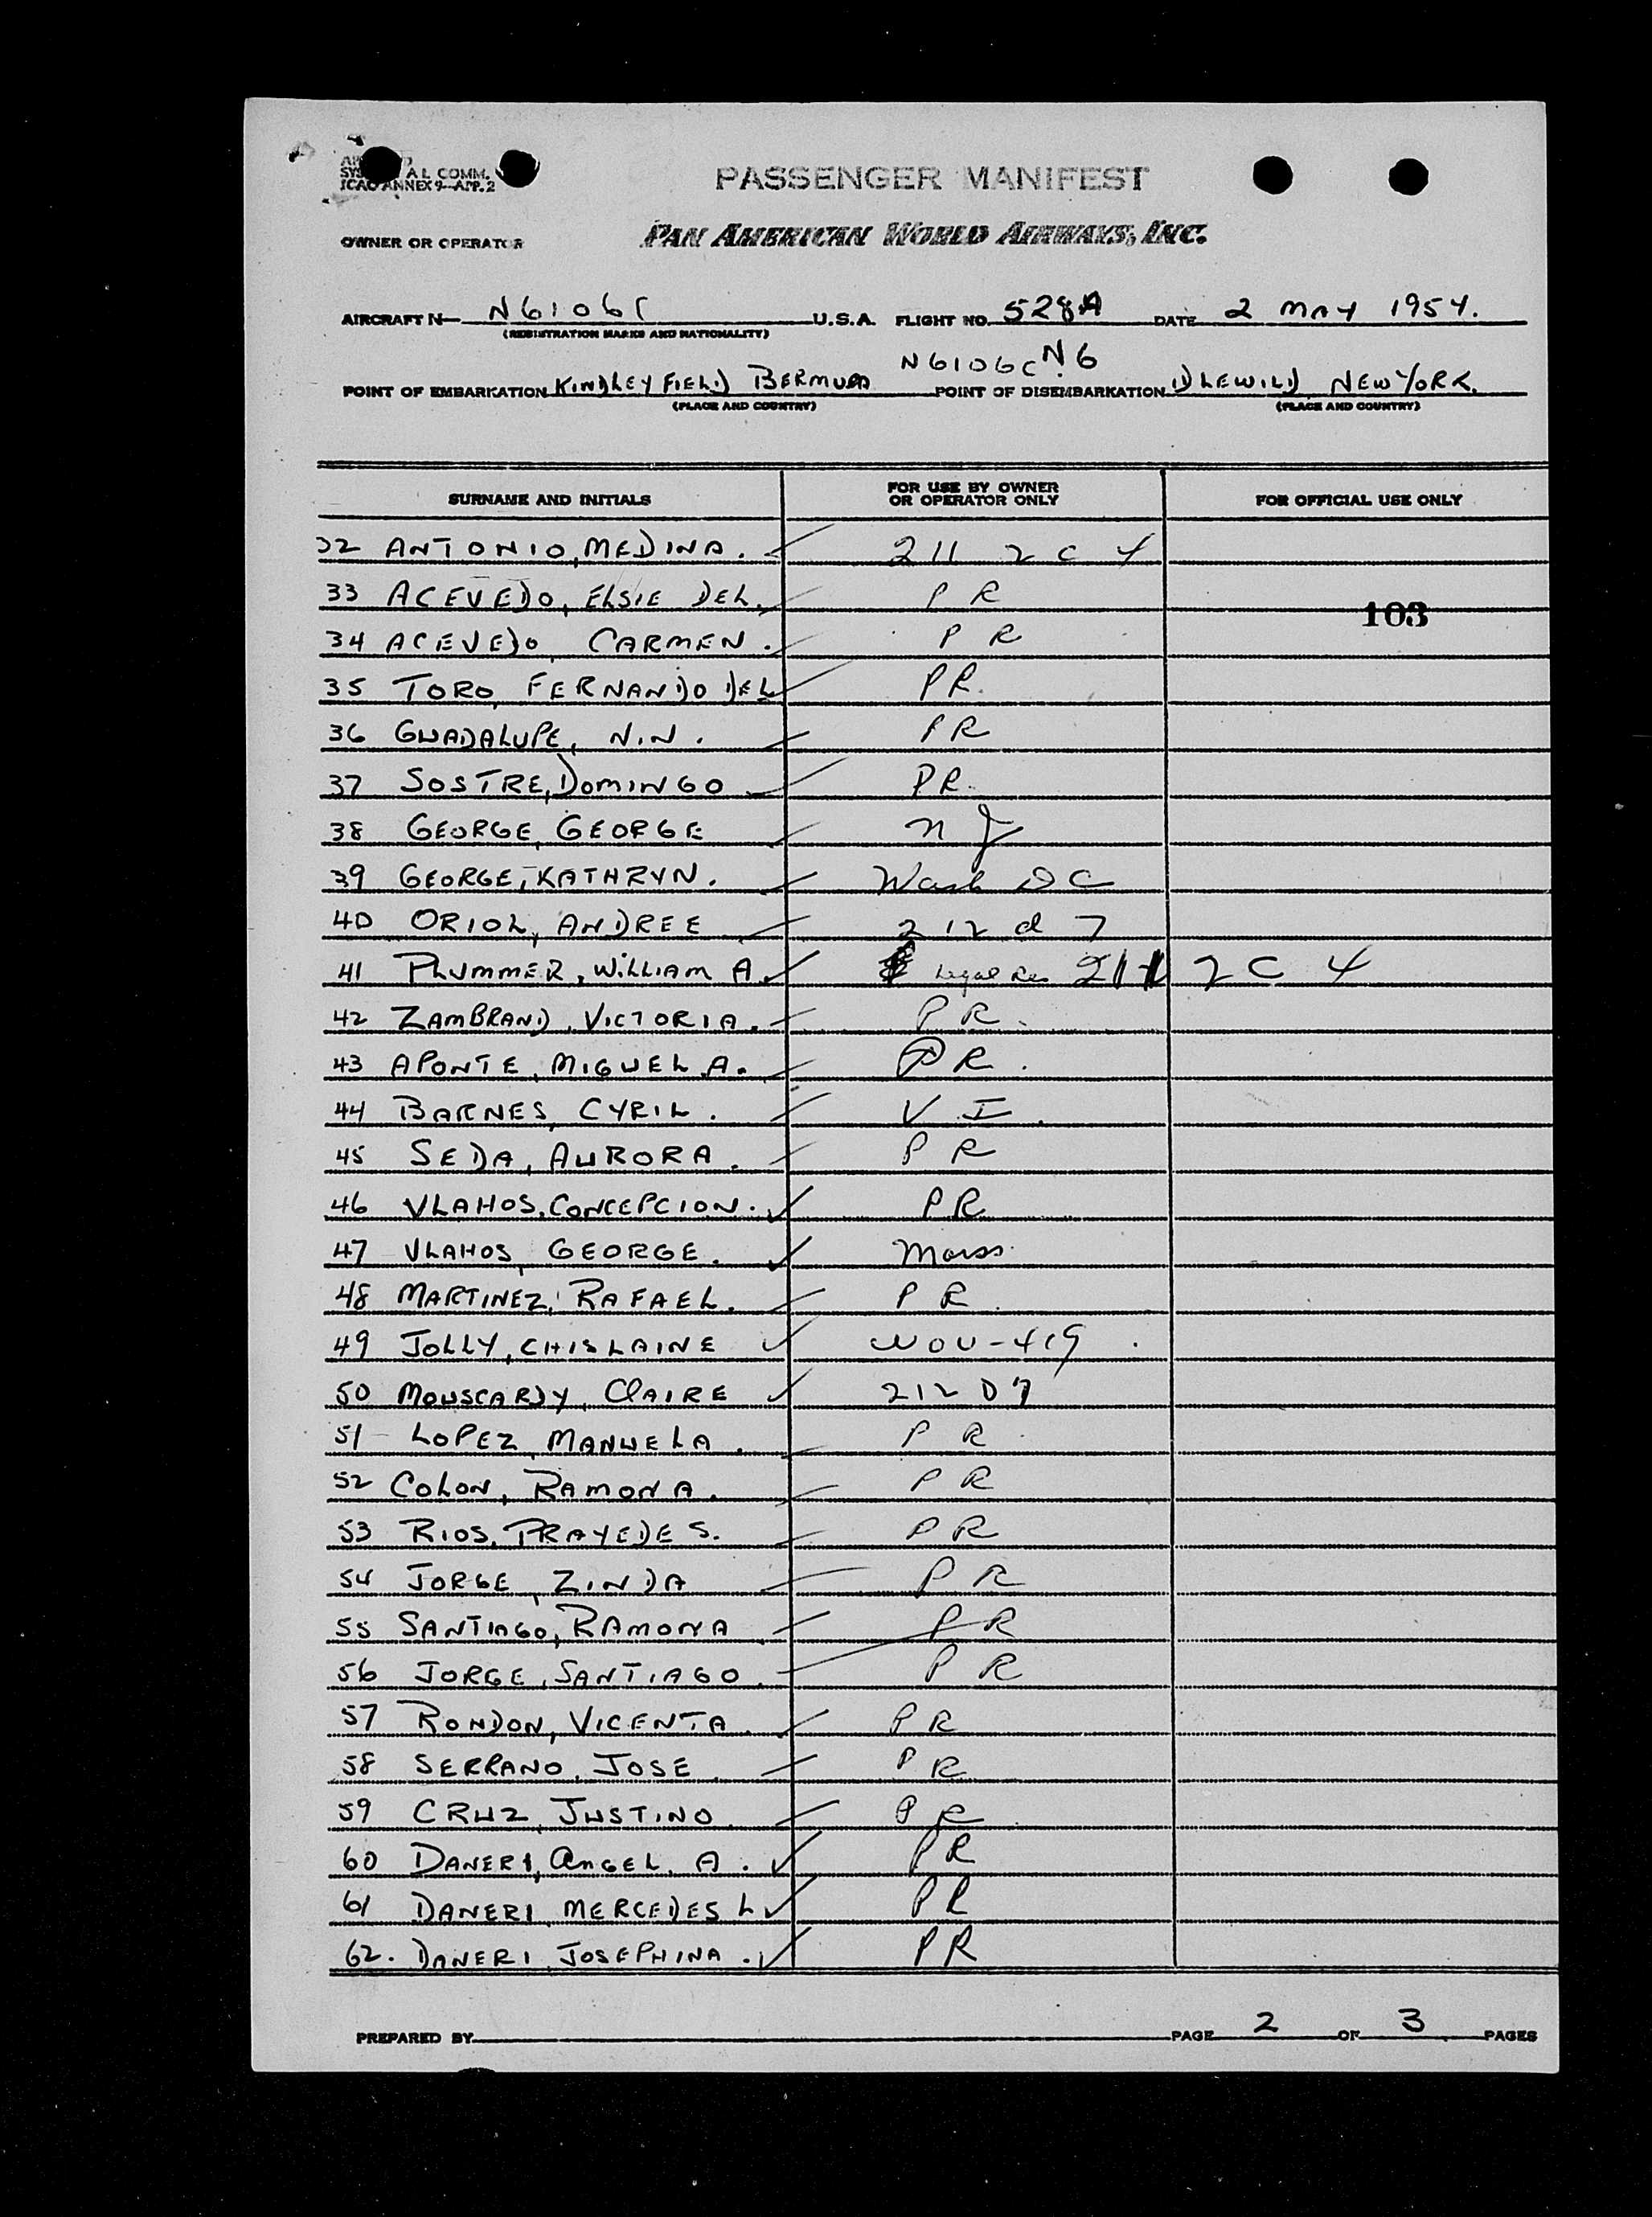 PASSENGER MANIFEST
A L COMM.
ICAO ANNEX 9-APP. 2
OWNER OR OPERATOR PAN AMERICAN WORLD AIRWAYS, INC.
AIRCRAFT N N6106C U.S.A. FLIGHT NO. 528A DATE 2 MAY 1954.
(REGISTRATION MARKS AND NATIONALITY)
N6106C N6
POINT OF EMBARKATION KINDLEY FIELD BERMUDA POINT OF DISEMBARKATION IDLEWILD NEW YORK.
(PLACE AND COUNTRY) (PLACE AND COUNTRY)
SURNAME AND INITIALS FOR USE BY OWNER OR OPERATOR ONLY FOR OFFICIAL USE ONLY
32 ANTONIO, MEDINA. 211 2 C 4
33 ACEVEDO, ELSIE DEL. P R
103
34 ACEVEDO, CARMEN. P R
35 TORO, FERNANDO DEL PR.
36 GUADALUPE, N.N. PR
37 SOSTRE, DOMINGO PR.
38 GEORGE, GEORGE N J
39 GEORGE, KATHRYN. Wash D C
40 ORIOL, ANDREE 212 d 7
41 PLUMMER, WILLIAM A. Legal Res 211 2 C 4
42 ZAMBRANO, VICTORIA. P R.
43 APONTE, MIGUEL A. P R.
44 BARNES, CYRIL. V I.
45 SEDA, AURORA. P R
46 VLAHOS, CONCEPCION. PR
47 VLAHOS, GEORGE. Mass.
48 MARTINEZ, RAFAEL. P R.
49 JOLLY, CHISLAINE WOU-419
50 MOUSCARDY, CLAIRE 212 D 7
51 LOPEZ, MANUELA. P R
52 COLON, RAMONA. P R
53 RIOS, PRAYEDES. P R
54 JORGE, ZINDA P R
55 SANTIAGO, RAMONA P R
56 JORGE, SANTIAGO. P R
57 RONDON, VICENTA. P R
58 SERRANO, JOSE. P R
59 CRUZ, JUSTINO. P R
60 DANERI, ANGEL. A. PR
61 DANERI, MERCEDES L PR
62. DANERI, JOSEPHINA. PR
PREPARED BY PAGE 2 OF 3 PAGES